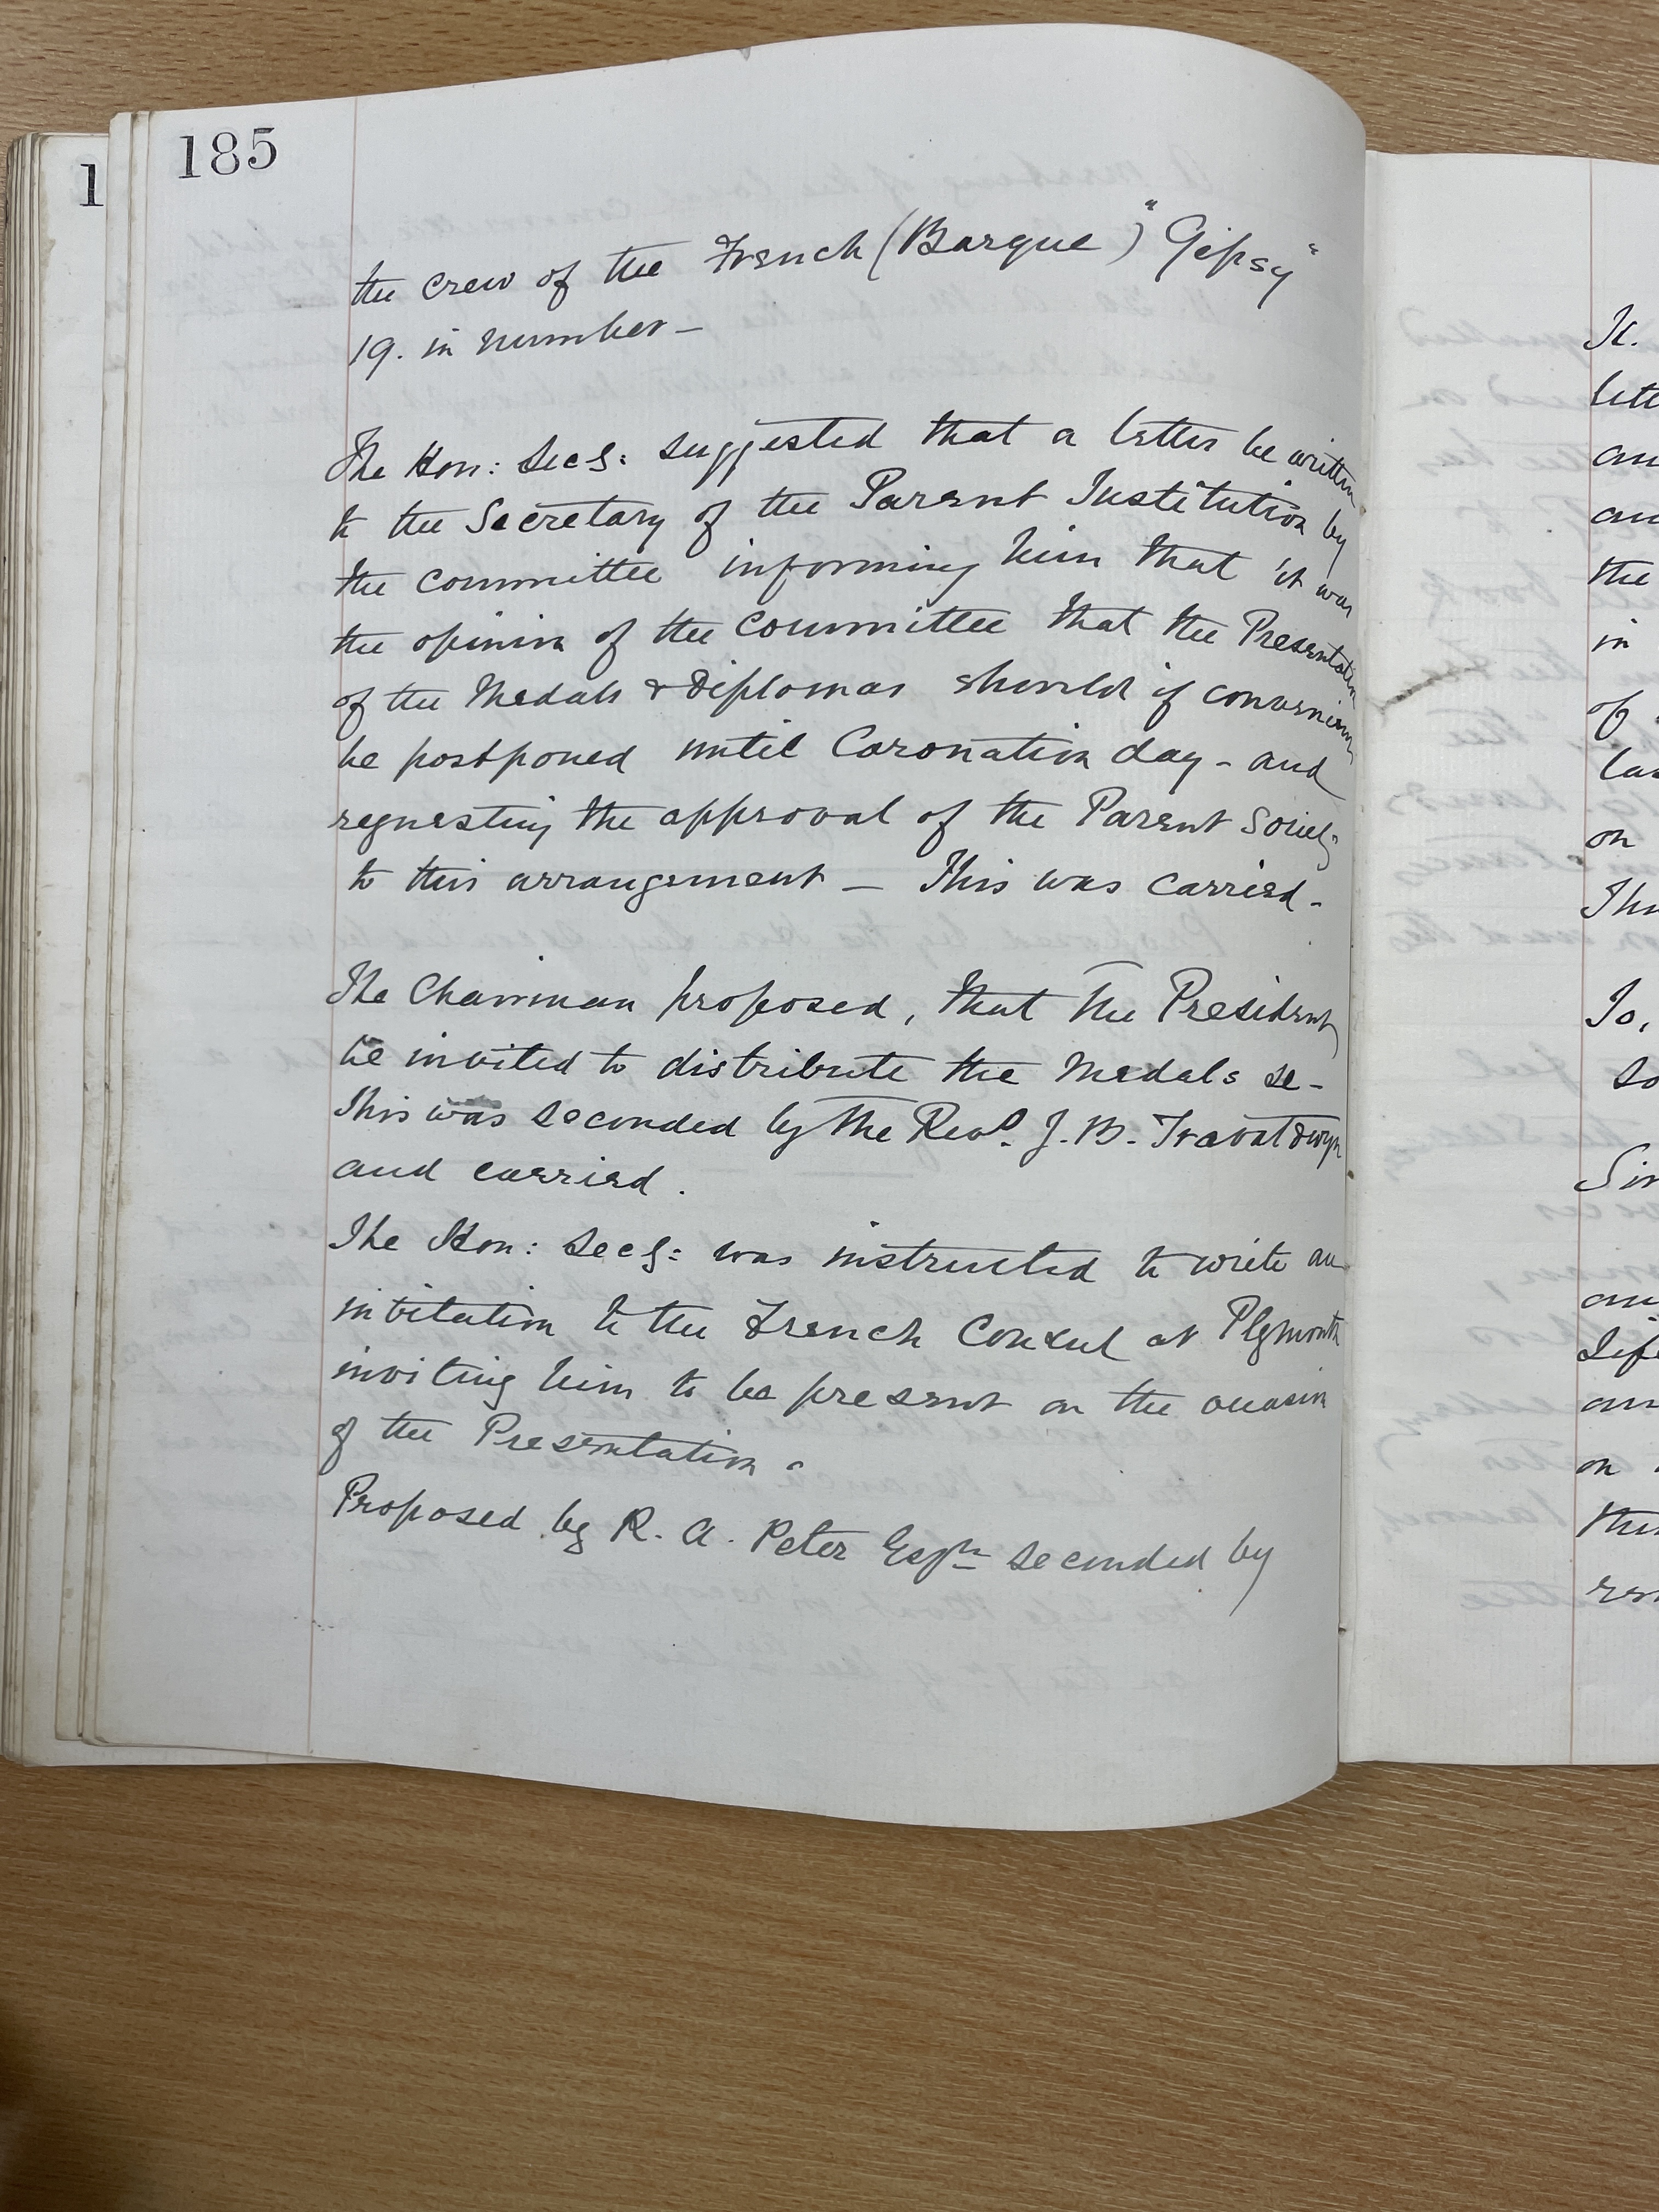 185
1
the crew of the French (Barque) "Gipsy"
19. in number —
The Hon: Secy: suggested that a letter be written
to the Secretary of the Parent Institution by
the committee informing him that it was
the opinion of the committee that the Presentation
of the Medals & Diplomas should if convenient
be postponed until Coronation day - and
requesting the approval of the Parent Society
to this arrangement — This was carried -
The Chairman proposed, that the President
be invited to distribute the Medals &c -
This was seconded by the Revd. J. B.
and carried.
The Hon: Secy: was instructed to write an
invitation to the French Consul at Plymouth
inviting him to be present on the occasion
of the Presentation -
Proposed by R. A. Peter Esqre seconded by
lett
an
an
the
in
of
las
on
so
Sir
an
Life
an
on